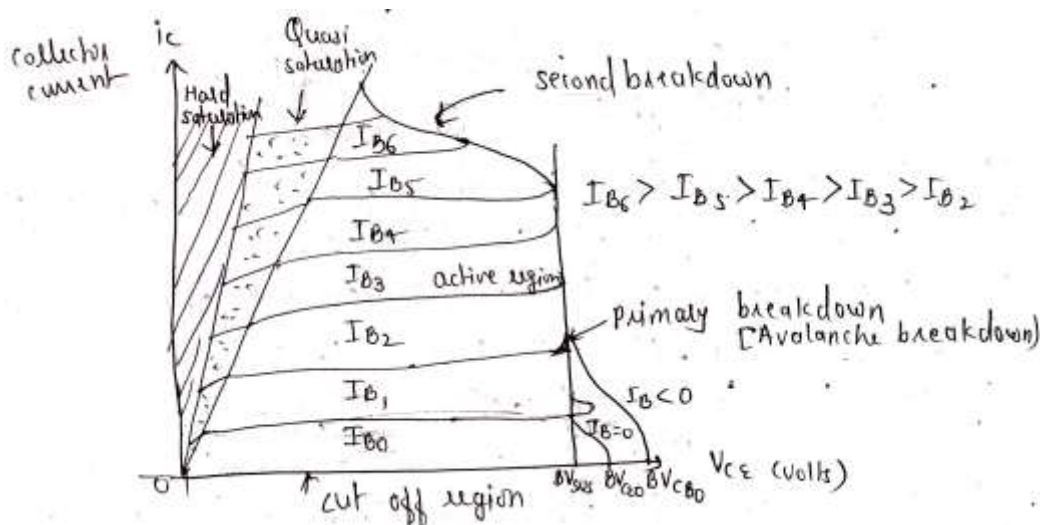 collector
current
ic
Hard
saturation
Quasi
saturation
second breakdown
IB6
IB5
IB4
IB3
active region
IB2
IB1
IB0
IB6 > IB5 > IB4 > IB3 > IB2
Primary breakdown
[Avalanche breakdown)
IB<0
IB=0
0
cut off region
BVSUS
BVCEO
BVCBO
VCE (volts)